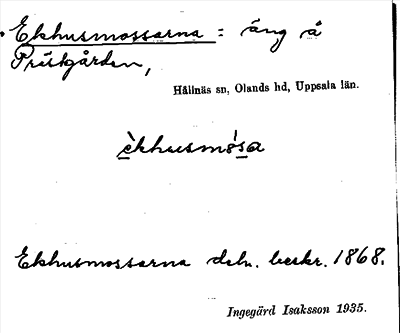 Ekhusmossarna = äng å
Prästgården,
Hållnäs sn, Olands hd, Uppsala län.
èkhusmósa
Ekhusmossarna deln. beskr. 1868.
Ingegärd Isaksson 1935.